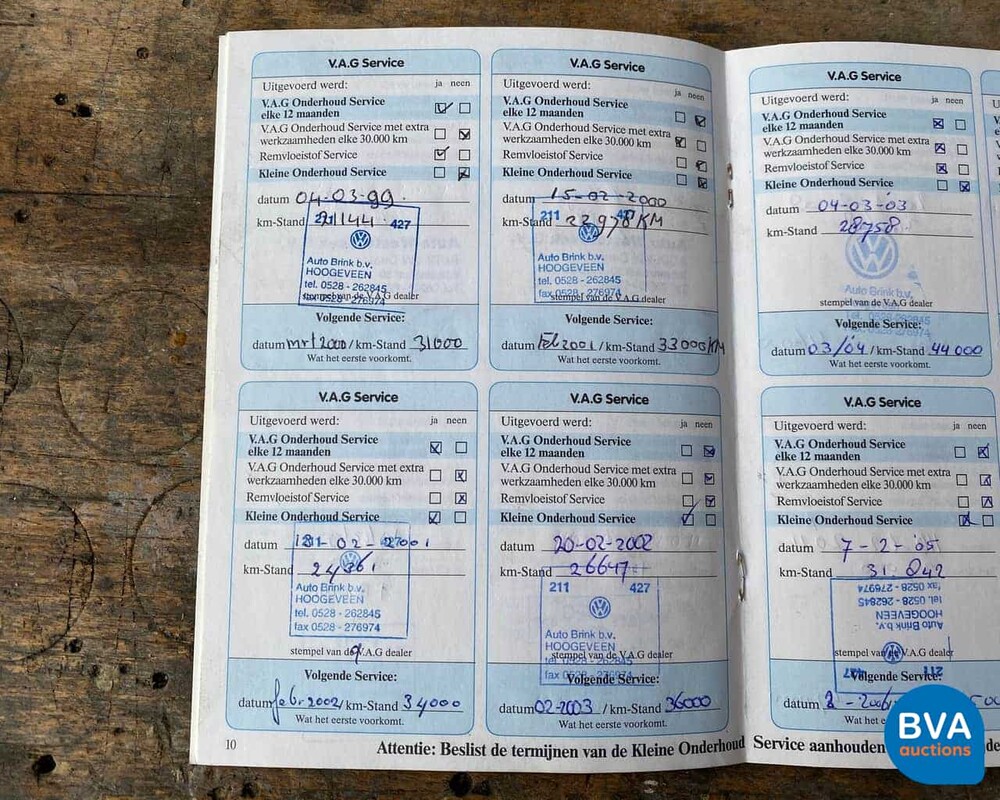 V.A.G Service
Uitgevoerd werd: ja neen
V.A.G Onderhoud Service
elke 12 maanden
V.A.G Onderhoud Service met extra
werkzaamheden elke 30.000 km
Remvloeistof Service
Kleine Onderhoud Service
datum 04-03-99.
km-Stand 21144.
211 427
Auto Brink b.v.
HOOGEVEEN
tel. 0528 - 262845
fax 0528 - 276974
stempel van de V.A.G dealer
Volgende Service:
datum mrt 2000 / km-Stand 31000
Wat het eerste voorkomt.
V.A.G Service
Uitgevoerd werd: ja neen
V.A.G Onderhoud Service
elke 12 maanden
V.A.G Onderhoud Service met extra
werkzaamheden elke 30.000 km
Remvloeistof Service
Kleine Onderhoud Service
datum 15-02-2000
km-Stand 22978 KM
211 427
Auto Brink b.v.
HOOGEVEEN
tel. 0528 - 262845
fax 0528 - 276974
stempel van de V.A.G dealer
Volgende Service:
datum Feb 2001 / km-Stand 33000 KM
Wat het eerste voorkomt.
V.A.G Service
Uitgevoerd werd: ja neen
V.A.G Onderhoud Service
elke 12 maanden
V.A.G Onderhoud Service met extra
werkzaamheden elke 30.000 km
Remvloeistof Service
Kleine Onderhoud Service
datum 04-03-03
km-Stand 28758
Auto Brink b.v.
stempel van de V.A.G dealer
Volgende Service:
datum 03/04 / km-Stand 44000
Wat het eerste voorkomt.
V.A.G Service
Uitgevoerd werd: ja neen
V.A.G Onderhoud Service
elke 12 maanden
V.A.G Onderhoud Service met extra
werkzaamheden elke 30.000 km
Remvloeistof Service
Kleine Onderhoud Service
datum 02 - 2001
km-Stand
Auto Brink b.v.
HOOGEVEEN
tel. 0528 - 262845
fax 0528 - 276974
stempel van de V.A.G dealer
Volgende Service:
datum feb. 2002 / km-Stand 34000
Wat het eerste voorkomt.
V.A.G Service
Uitgevoerd werd: ja neen
V.A.G Onderhoud Service
elke 12 maanden
V.A.G Onderhoud Service met extra
werkzaamheden elke 30.000 km
Remvloeistof Service
Kleine Onderhoud Service
datum 20-02-2002
km-Stand 26647
211 427
Auto Brink b.v.
HOOGEVEEN
tel. 0528 - 262845
fax 0528 - 276974
stempel van de V.A.G dealer
Volgende Service:
datum 02-2003 / km-Stand 36000
Wat het eerste voorkomt.
V.A.G Service
Uitgevoerd werd: ja neen
V.A.G Onderhoud Service
elke 12 maanden
V.A.G Onderhoud Service met extra
werkzaamheden elke 30.000 km
Remvloeistof Service
Kleine Onderhoud Service
datum 7-2-05
km-Stand 31.042
fax 0528 - 276974
tel. 0528 - 262845
HOOGEVEEN
Auto Brink b.v.
stempel van de V.A.G dealer
211 427
Volgende Service:
datum 2-2006 / km-Stand
Wat het eerste
10
Attentie: Beslist de termijnen van de Kleine Onderhoud Service aanhouden
BVA
auctions